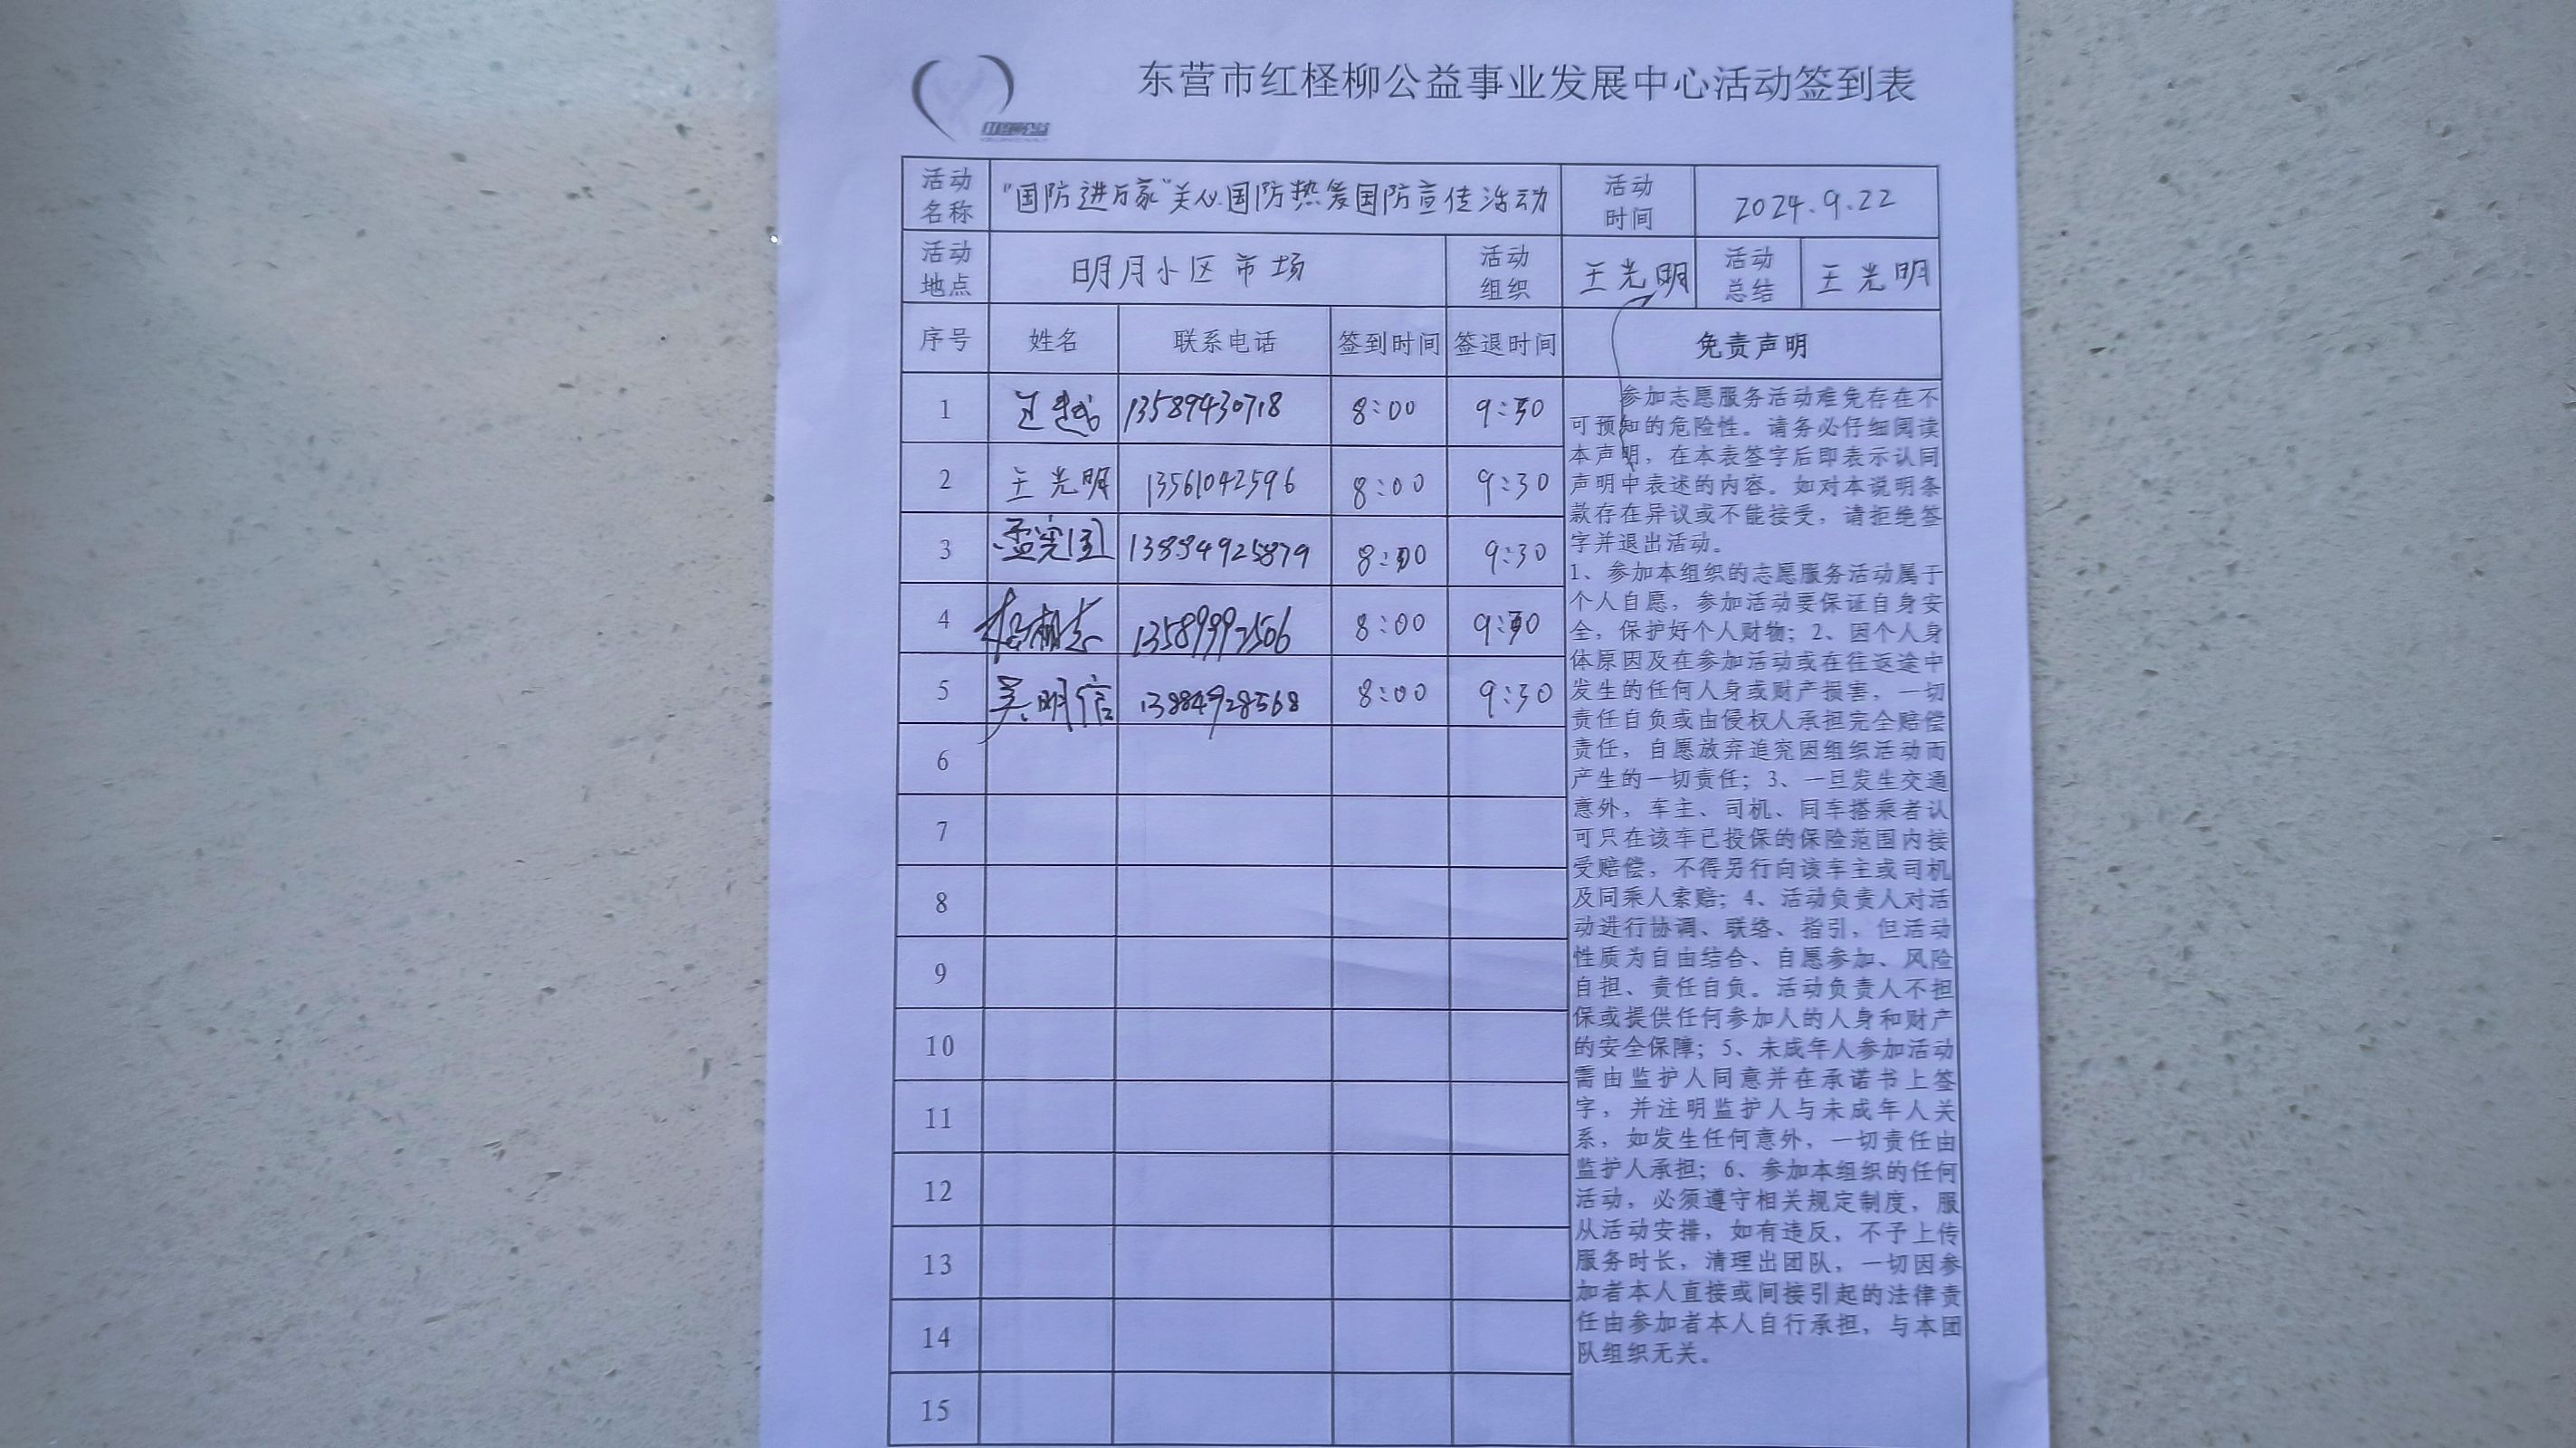 东营市红柽柳公益事业发展中心活动签到表
红柽柳公益
活动名称 "国防进万家"关心国防热爱国防宣传活动 活动时间 2024.9.22
活动地点 明月小区市场 活动组织 王光明 活动总结 王光明
序号 姓名 联系电话 签到时间 签退时间 免责声明
1 13589430718 8:00 9:30
2 王光明 13561042596 8:00 9:30
3 孟宪国 13884925879 8:00 9:30
4 13589997506 8:00 9:30
5 吴明信 13884928568 8:00 9:30
6
7
8
9
10
11
12
13
14
15
参加志愿服务活动难免存在不
可预知的危险性。请务必仔细阅读
本声明，在本表签字后即表示认同
声明中表述的内容。如对本说明条
款存在异议或不能接受，请拒绝签
字并退出活动。
1、参加本组织的志愿服务活动属于
个人自愿，参加活动要保证自身安
全，保护好个人财物；2、因个人身
体原因及在参加活动或在往返途中
发生的任何人身或财产损害，一切
责任自负或由侵权人承担完全赔偿
责任，自愿放弃追究因组织活动而
产生的一切责任；3、一旦发生交通
意外，车主、司机、同车搭乘者认
可只在该车已投保的保险范围内接
受赔偿，不得另行向该车主或司机
及同乘人索赔；4、活动负责人对活
动进行协调、联络、指引，但活动
性质为自由结合、自愿参加、风险
自担、责任自负。活动负责人不担
保或提供任何参加人的人身和财产
的安全保障；5、未成年人参加活动
需由监护人同意并在承诺书上签
字，并注明监护人与未成年人关
系，如发生任何意外，一切责任由
监护人承担；6、参加本组织的任何
活动，必须遵守相关规定制度，服
从活动安排，如有违反，不予上传
服务时长，清理出团队，一切因参
加者本人直接或间接引起的法律责
任由参加者本人自行承担，与本团
队组织无关。